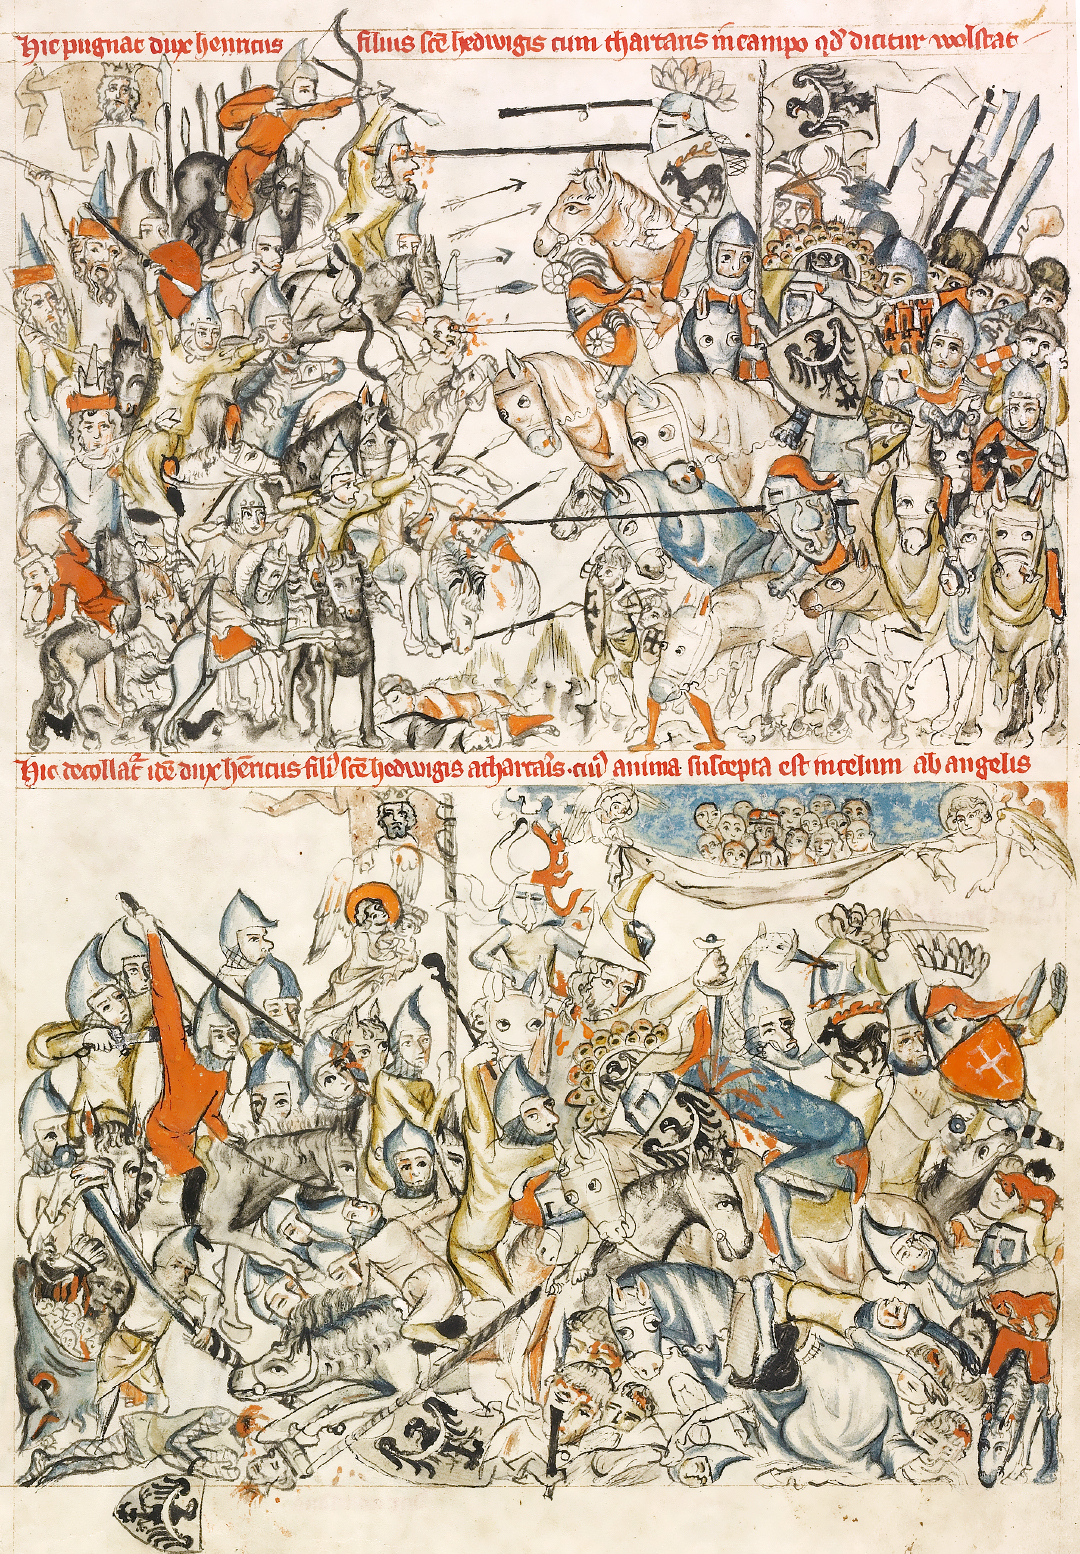 Hic pugnat dux henricus filius sc̄e hedwigis cum thartaris in campo qd̄ dicitur wolstat
Hic decollat᷑ idē dux hēricus filiꝰ sc̄e hedwigis a thartaīs. cuiꝰ anima suscepta est in celum ab angelis